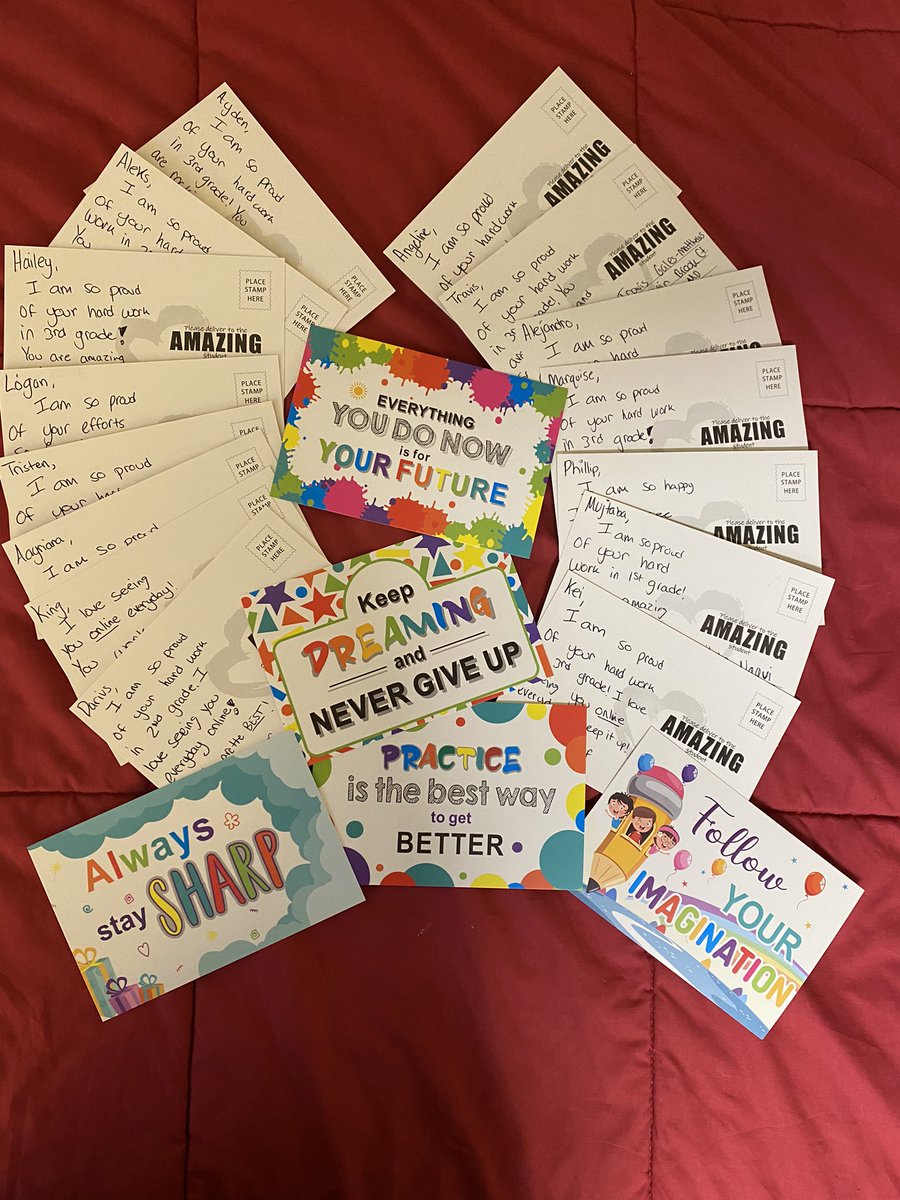 Ayden,
I am so proud
of your hard work
in 3rd grade! You
are
PLACE
STAMP
HERE
Aleks,
I am so proud
of your hard
work in
You
PLACE
STAMP
HERE
Hailey,
I am so proud
of your hard work
in 3rd grade!
You are amazing
PLACE
STAMP
HERE
Please deliver to the
AMAZING
student
Logan,
I am so proud
of your efforts
PLACE
STAMP
HERE
Tristen,
I am so proud
of your
PLACE
STAMP
Aayhana,
I am so proud
PLACE
STAMP
King,
I love seeing
you online everyday!
You
PLACE
STAMP
HERE
Darius,
I am so proud
of your hard work
in 2nd grade. I
love seeing you
everyday online!
the BEST!
PLACE
STAMP
HERE
Angeline,
I am so proud
of your hard work
PLACE
STAMP
HERE
Please deliver to the
AMAZING
Travis,
I am so proud
of your hard work
in 3rd grade! You
PLACE
STAMP
HERE
Please deliver to the
AMAZING
Travis
Alejandro,
I am so proud
of your hard
PLACE
STAMP
HERE
Marquise,
I am so proud
of your hard work
in 3rd grade!
PLACE
STAMP
HERE
Please deliver to the
AMAZING
Phillip,
I am so happy
PLACE
STAMP
HERE
Please deliver to the
AMAZING
Mujtaba,
I am so proud
of your hard
work in 1st grade!
amazing
PLACE
STAMP
HERE
Please deliver to the
AMAZING
student
Kei,
I am so proud
of your hard work
3rd grade! I love
seeing you online
keep it up!
PLACE
STAMP
HERE
Please deliver to the
AMAZING
student
EVERYTHING
YOU DO NOW
is for
YOUR FUTURE
Keep
DREAMING
and
NEVER GIVE UP
PRACTICE
is the best way
to get
BETTER
Always
stay SHARP
Follow
YOUR
IMAGINATION